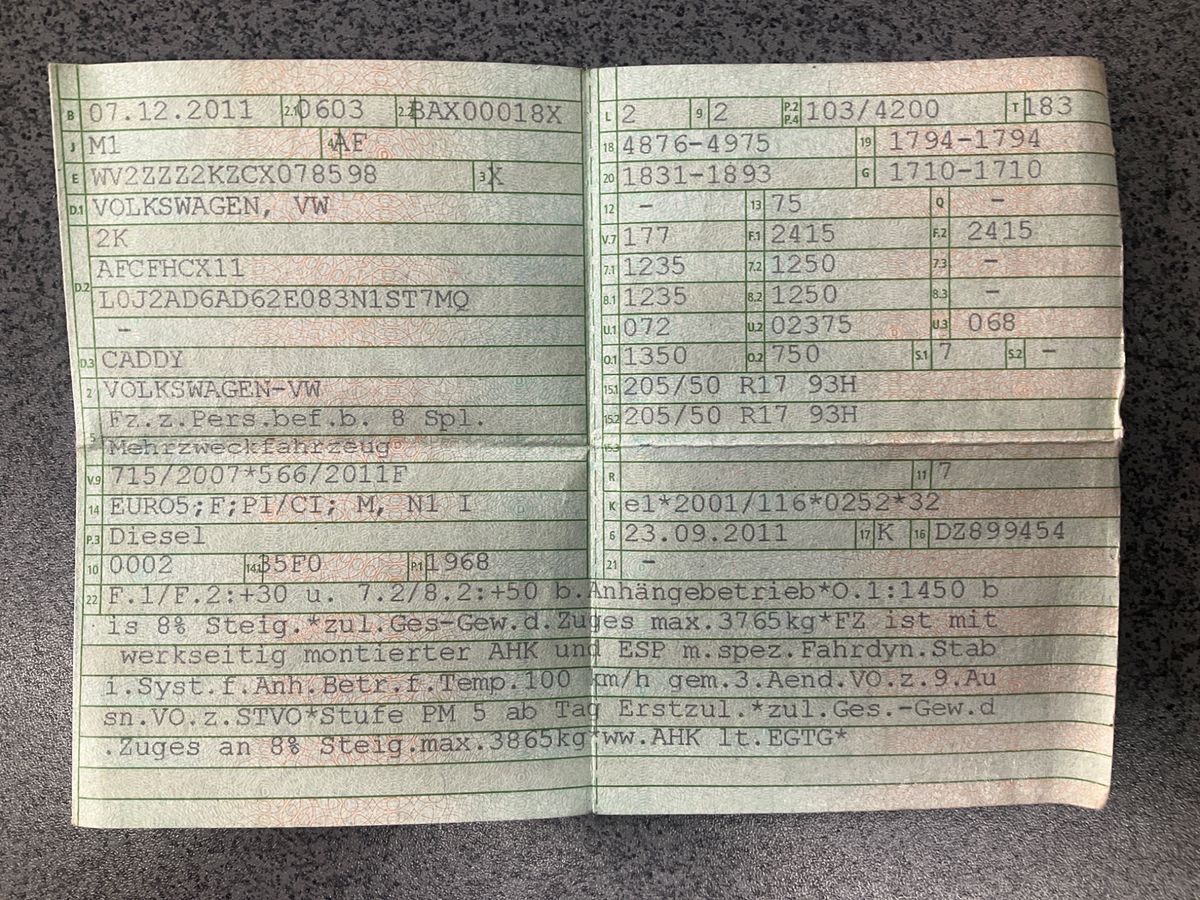 B 07.12.2011 2.1 0603 2.2 BAX00018X
J M1 4 AF
E WV2ZZZ2KZCX078598 3 X
D.1 VOLKSWAGEN, VW
D.2 2K
AFCFHCX11
L0J2AD6AD62E083N1ST7MQ
-
D.3 CADDY
2 VOLKSWAGEN-VW
5 Fz.z.Pers.bef.b. 8 Spl.
Mehrzweckfahrzeug
V.9 715/2007*566/2011F
14 EURO5;F;PI/CI; M, N1 I
P.3 Diesel
10 0002 14.1 35F0 P.1 1968
L 2 9 2 P.2 P.4 103/4200 T 183
18 4876-4975 19 1794-1794
20 1831-1893 G 1710-1710
12 - 13 75 Q -
V.7 177 F.1 2415 F.2 2415
7.1 1235 7.2 1250 7.3 -
8.1 1235 8.2 1250 8.3 -
U.1 072 U.2 02375 U.3 068
O.1 1350 O.2 750 S.1 7 S.2 -
15.1 205/50 R17 93H
15.2 205/50 R17 93H
15.3 -
R 11 7
K e1*2001/116*0252*32
6 23.09.2011 17 K 16 DZ899454
21 -
22 F.1/F.2:+30 u. 7.2/8.2:+50 b.Anhängebetrieb*O.1:1450 b
is 8% Steig.*zul.Ges-Gew.d.Zuges max.3765kg*FZ ist mit
werkseitig montierter AHK und ESP m.spez.Fahrdyn.Stab
i.Syst.f.Anh.Betr.f.Temp.100 km/h gem.3.Aend.VO.z.9.Au
sn.VO.z.STVO*Stufe PM 5 ab Tag Erstzul.*zul.Ges.-Gew.d
.Zuges an 8% Steig.max.3865kg*ww.AHK lt.EGTG*